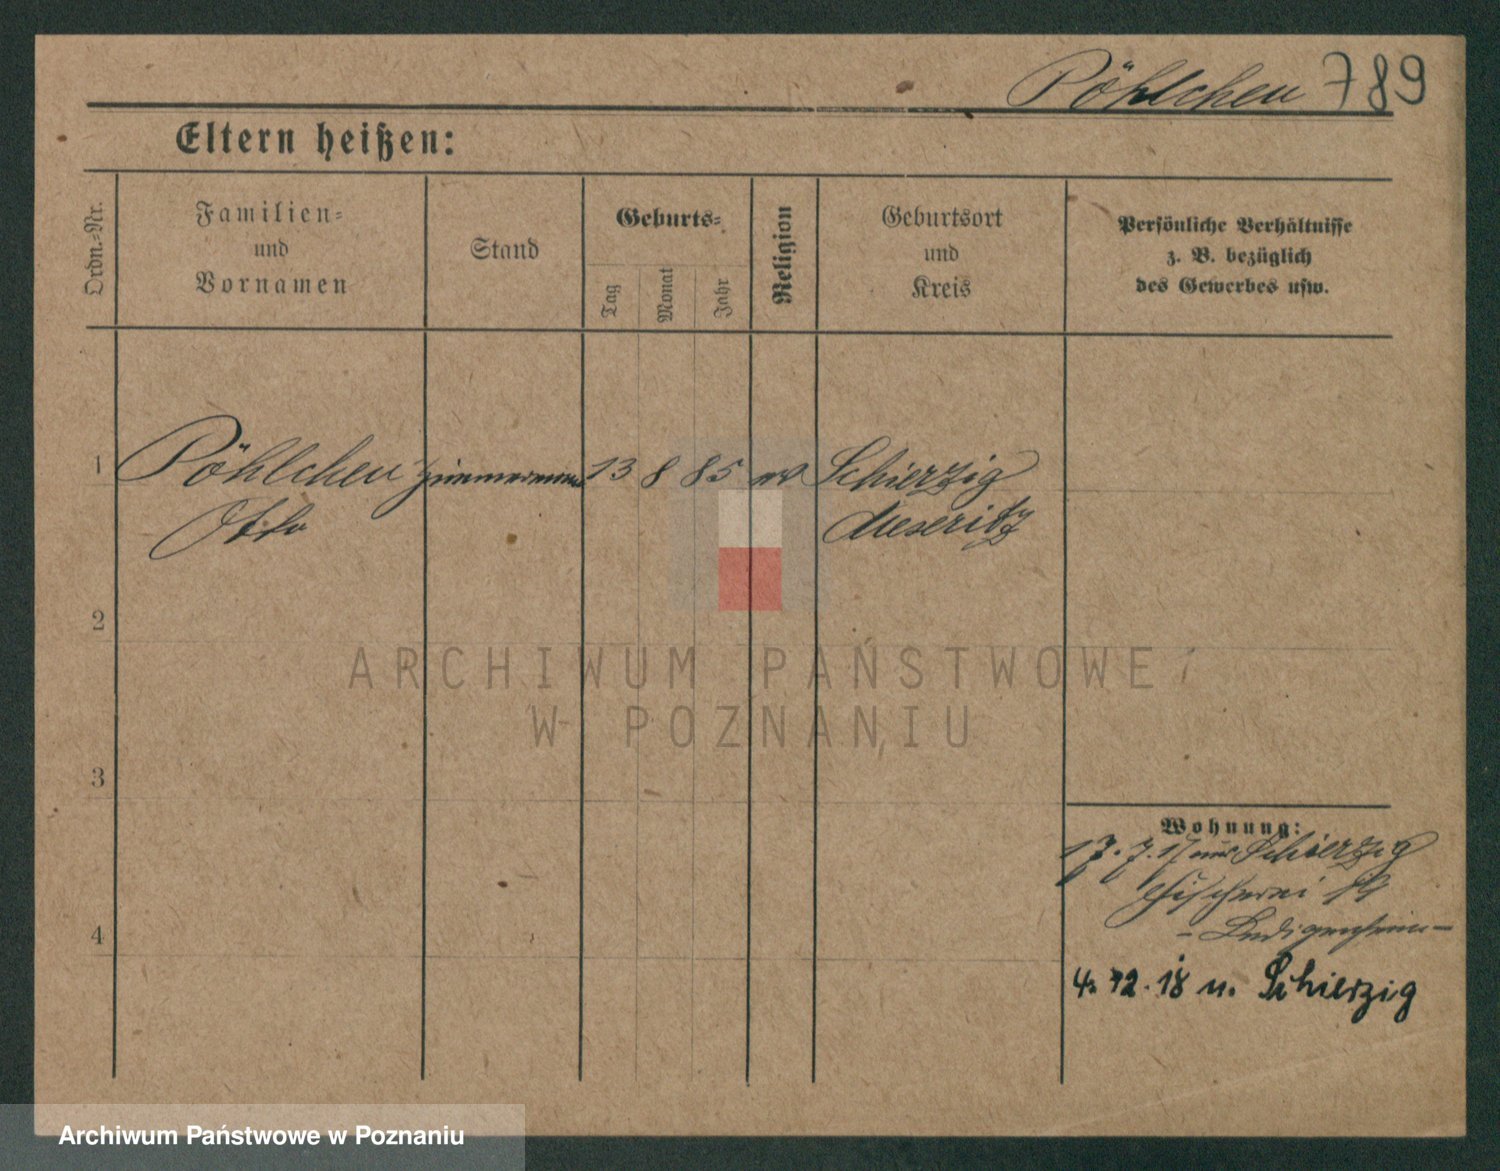 Pöhlchen 789
Eltern heißen:
Ordn.-Nr.
Familien-
und
Vornamen
Stand
Geburts-
Tag
Monat
Jahr
Religion
Geburtsort
und
Kreis
Persönliche Verhältnisse
z. B. bezüglich
des Gewerbes usw.
1 Pöhlchen Zimmermann 13 8 85 ev Schierzig
Otto Meseritz
2
ARCHIWUM PAŃSTWOWE
W POZNANIU
3
Wohnung:
17.7.17 von Schierzig
Fischerei
4
- Ledigenheim -
4. 12. 18 n. Schierzig
Archiwum Państwowe w Poznaniu